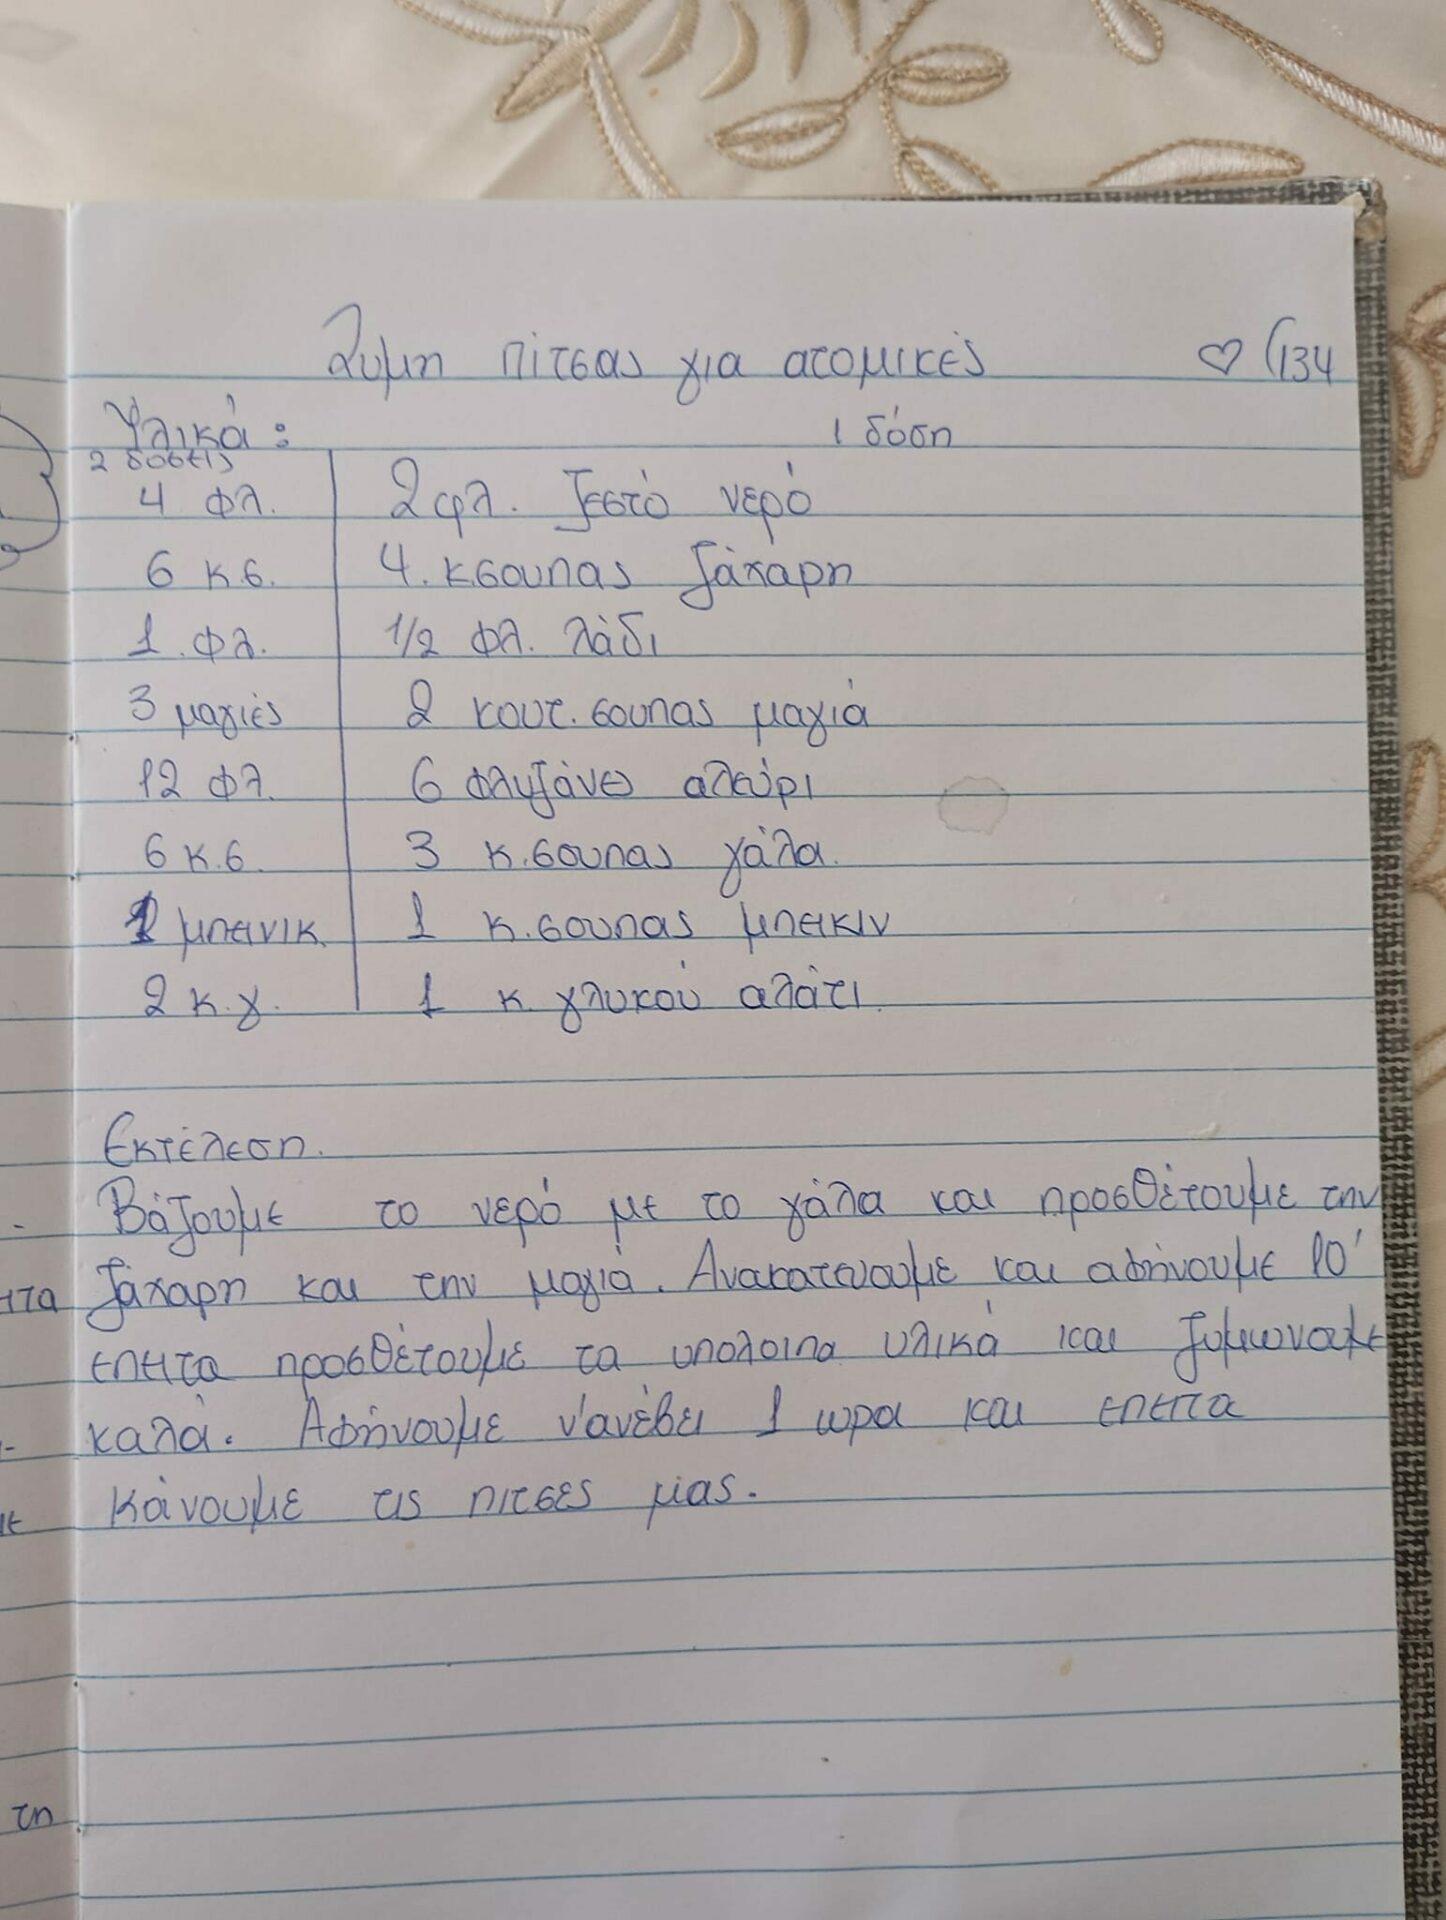 Ζυμη πίτσας για ατομικές ♡ 134
Υλικά : 1 δόση
2 δοσεις
4 φλ. 2 φλ. ζεστό νερό
6 κ.σ. 4. κ.σουπας ζάχαρη
1. φλ. 1/2 φλ. λάδι
3 μαγιές 2 κουτ. σουπας μαγιά
12 φλ. 6 φλυζάνες αλεύρι
6 κ.σ. 3 κ.σουπας γάλα.
μπεινικ. 1 κ.σουπας μπεικιν
2 κ.γ. 1 κ. γλυκού αλάτι.
Εκτέλεση.
Βάζουμε το νερό με το γάλα και προσθέτουμε την
ζάχαρη και την μαγιά. Ανακατευουμε και αφήνουμε 10'
επειτα προσθέτουμε τα υπολοιπα υλικά και ζυμωνουμε
καλά. Αφήνουμε ν'ανέβει 1 ωρα και επειτα
κάνουμε τις πιτσες μας.
ιτα
τη